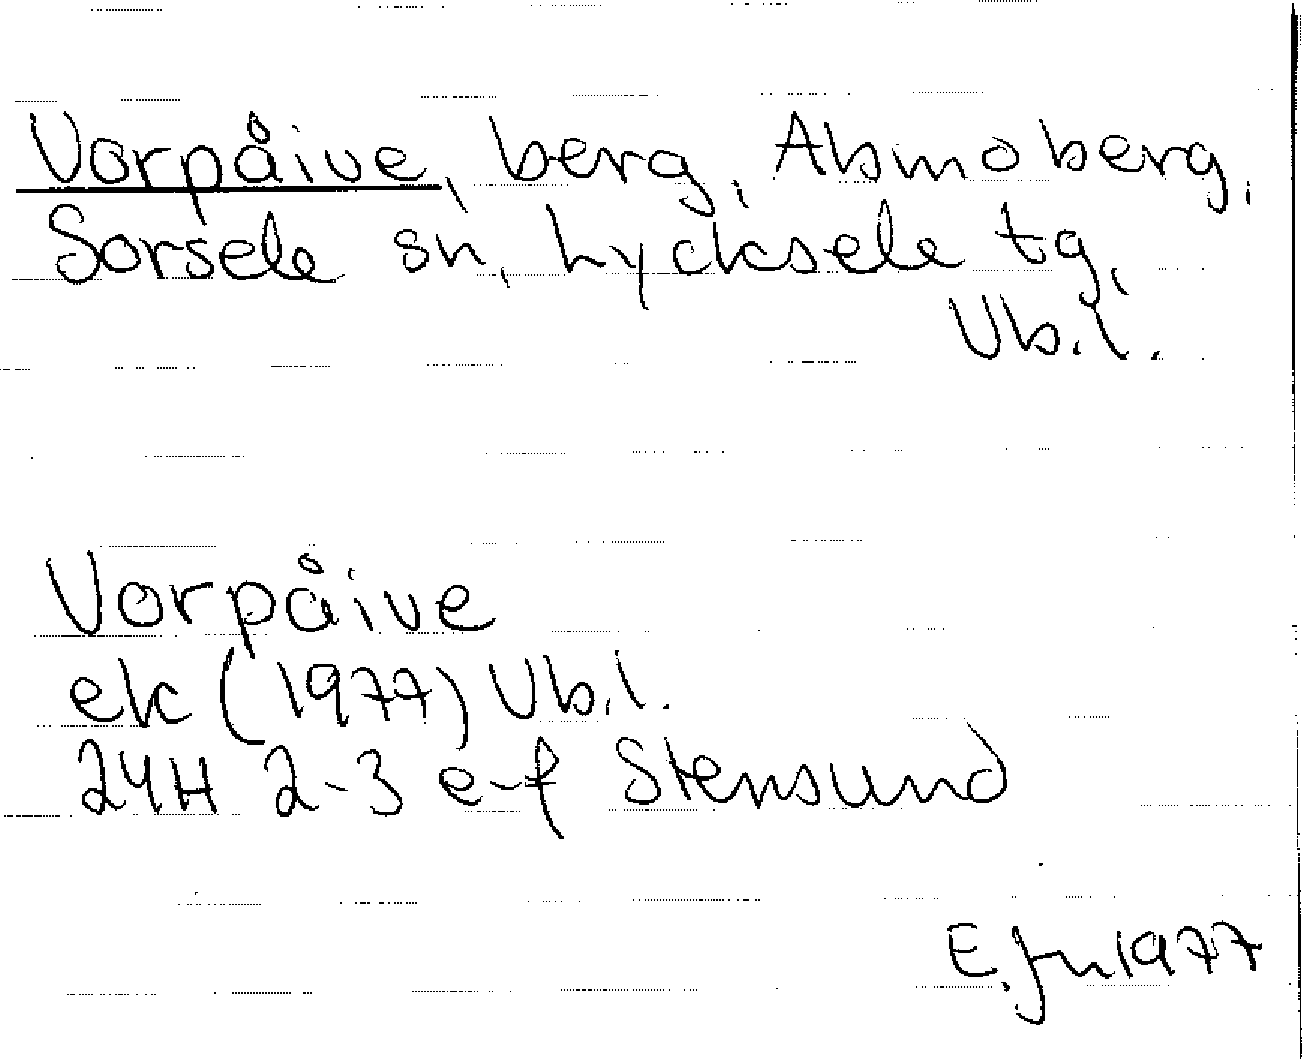 Vorpåive, berg, Absmoberg,
Sorsele sn, Lycksele tg,
Vb.l.
Vorpåive
ek (1977) Vb.l.
24H 2-3 e-f Stensund
1977